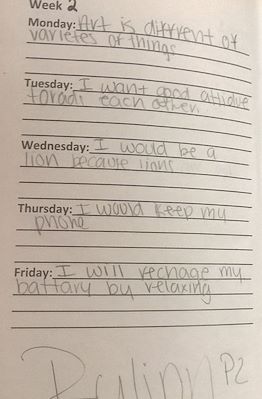 Week 2
Monday: Art is diffrent of
varietes of things
Tuesday: I want good attidue
toradi each other.
Wednesday: I would be a
lion because lions
Thursday: I would keep my
phone
Friday: I will rechage my
battary by relaxing
P2